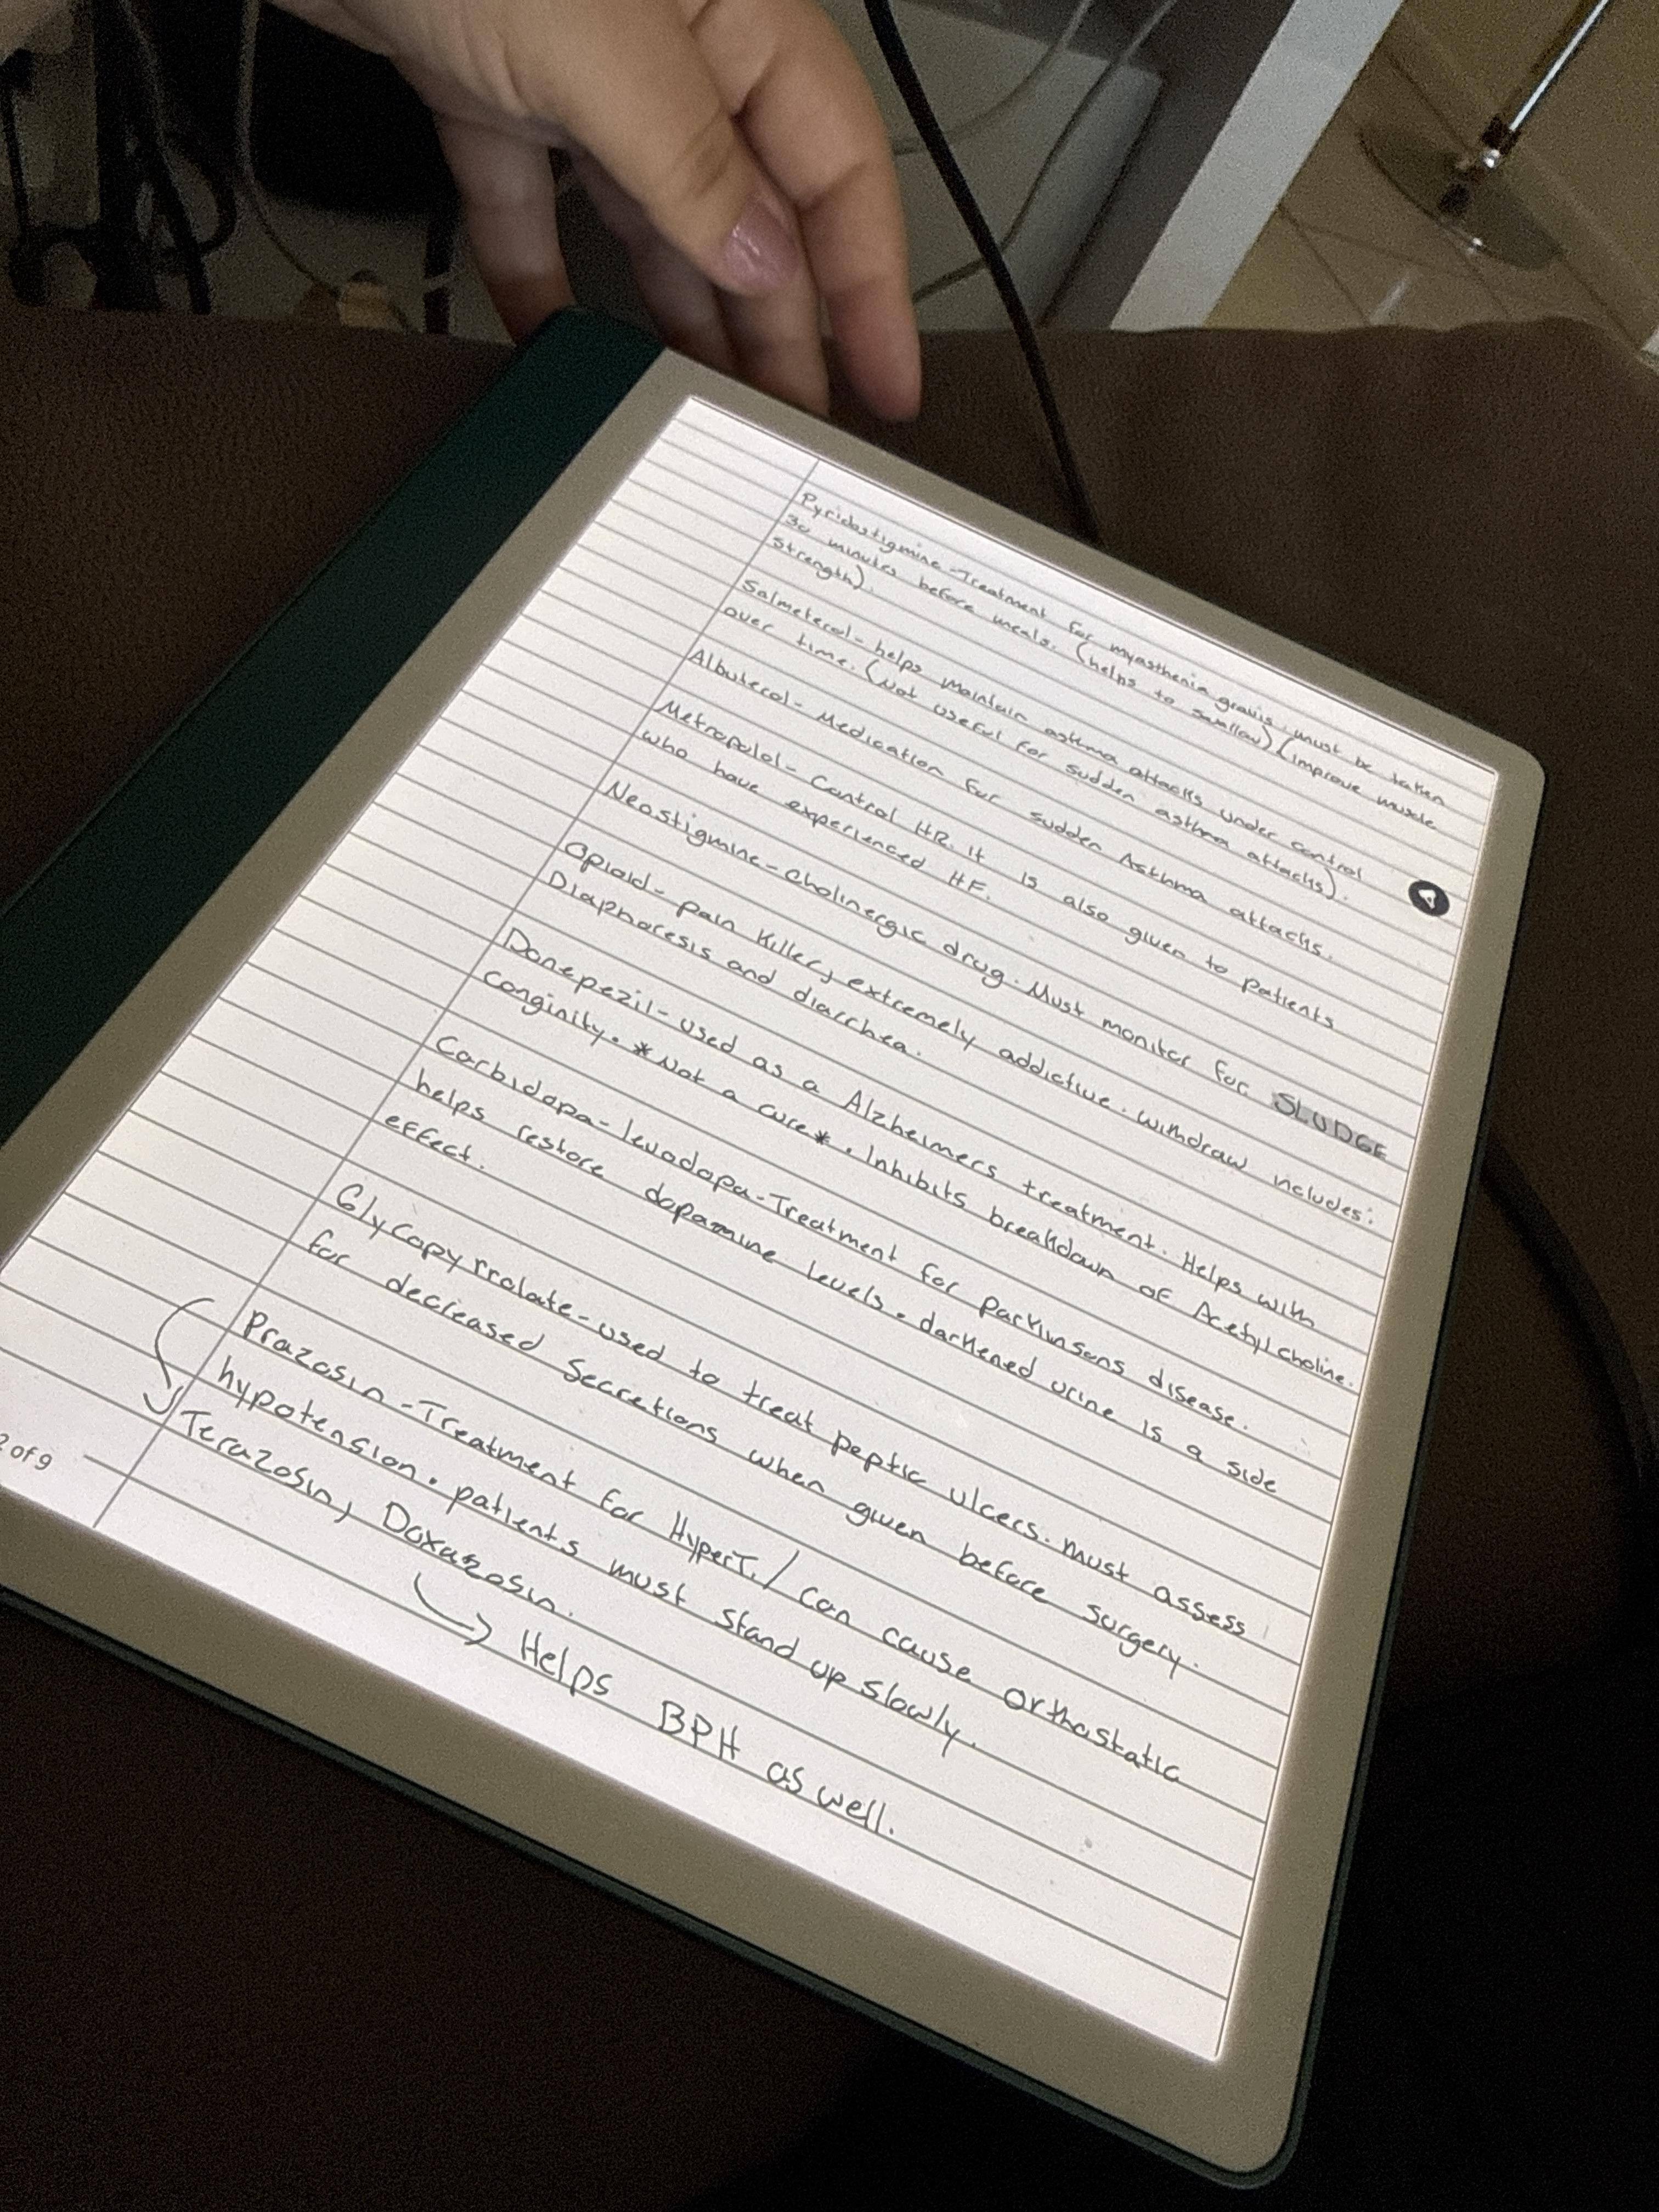 Pyridostigmine - Treatment for myasthenia gravis, must be taken
30 minutes before meals. (helps to swallow) (improve muscle
strength).
Salmeterol - helps maintain asthma attacks under control
over time. (Not useful for sudden asthma attacks).
Albuterol - Medication for sudden Asthma attacks.
Metropolol - Control HR. It is also given to patients
who have experienced HF.
Neostigmine - cholinergic drug. Must monitor for SLUDGE
Opioid - pain killer, extremely addictive. withdraw includes:
Diaphoresis and diarrhea.
Donepezil - used as a Alzheimers treatment. Helps with
conginity. *Not a cure*. Inhibits breakdown of Acetylcholine.
Carbidopa - levodopa - Treatment for parkinsons disease.
helps restore dopamine levels. darkened urine is a side
effect.
Glycopyrrolate - used to treat peptic ulcers. must assess
for decreased secretions when given before surgery.
Prazosin - Treatment for HyperT. / Can cause orthostatic
hypotension. patients must stand up slowly.
Terazosin, Doxazosin.
Helps BPH as well.
2 of 9